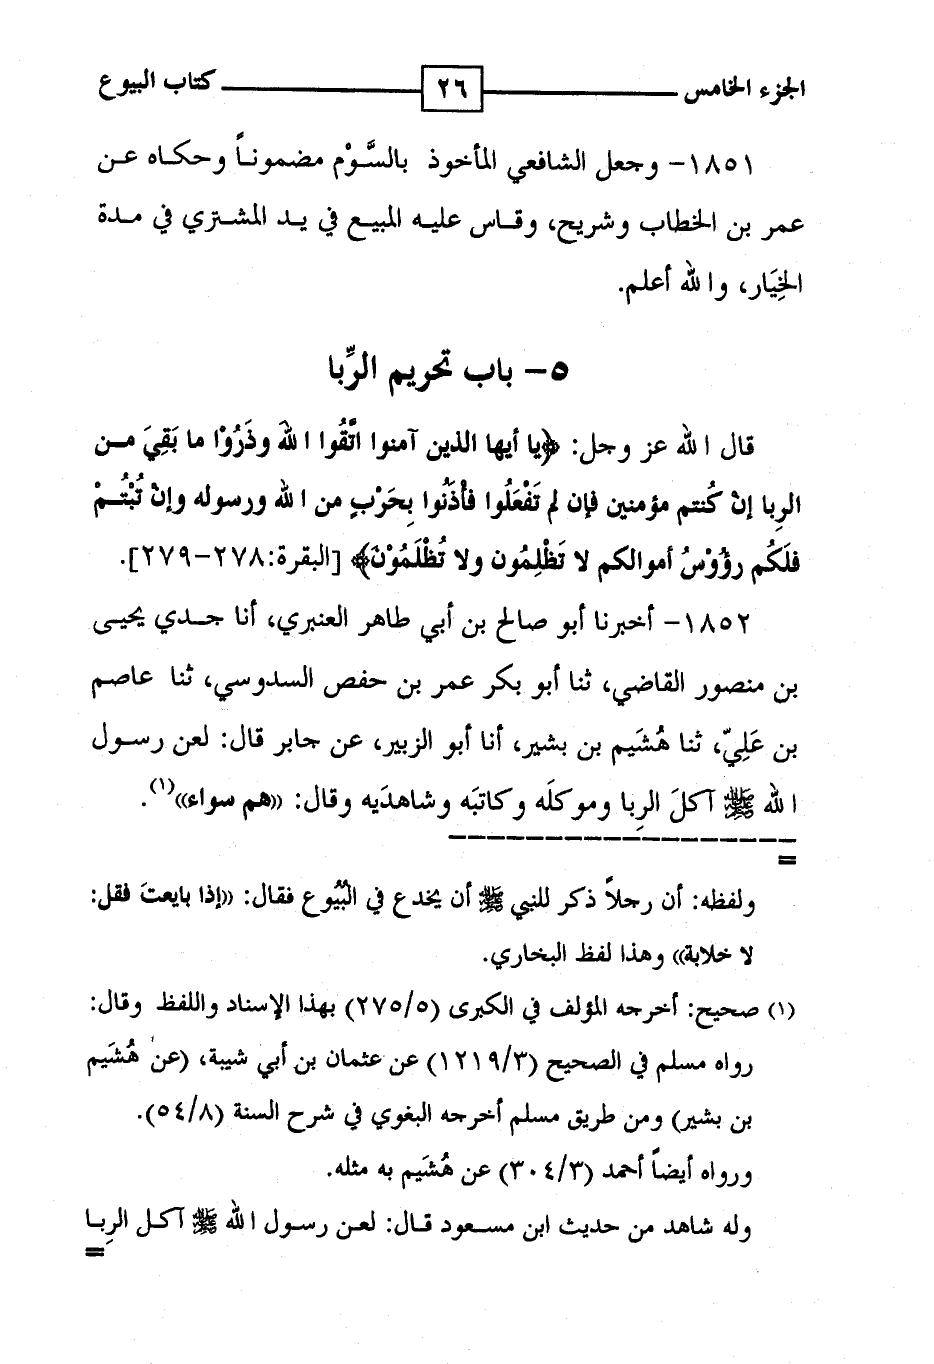 الجزء الخامس ٢٦ كتاب البيوع
١٨٥١- وجعل الشافعي المأخوذ بالسَّوْم مضموناً وحكاه عن
عمر بن الخطاب وشريح، وقاس عليه المبيع في يد المشتري في مدة
الخِيَار، والله أعلم.
٥- باب تحريم الرِّبا
قال الله عز وجل: ﴿يا أيها الذين آمنوا اتَّقُوا اللهَ وذَرُوْا ما بَقِيَ من
الرِبا إنْ كُنتم مؤمنين فإن لم تَفْعَلُوا فأذَنُوا بِحَرْبٍ من الله ورسوله وإنْ تُبْتُمْ
فلَكُم رؤُوْسُ أموالكم لا تَظْلِمُون ولا تُظْلَمُوْنَ﴾ [البقرة:٢٧٨-٢٧٩].
١٨٥٢- أخبرنا أبو صالح بن أبي طاهر العنبري، أنا جدي يحيى
بن منصور القاضي، ثنا أبو بكر عمر بن حفص السدوسي، ثنا عاصم
بن عَلِيّ، ثنا هُشَيم بن بشير، أنا أبو الزبير، عن جابر قال: لعن رسول
الله ﷺ آكلَ الرِبا وموكلَه وكاتبَه وشاهدَيه وقال: ((هم سواء))(١).
=
ولفظه: أن رجلاً ذكر للنبي ﷺ أن يخدع في البُيُوع فقال: ((إذا بايعتَ فقل:
لا خلابة)) وهذا لفظ البخاري.
(١) صحيح: أخرجه المؤلف في الكبرى (٢٧٥/٥) بهذا الإسناد واللفظ وقال:
رواه مسلم في الصحيح (١٢١٩/٣) عن عثمان بن أبي شيبة، (عن هُشَيم
بن بشير) ومن طريق مسلم أخرجه البغوي في شرح السنة (٥٤/٨).
ورواه أيضاً أحمد (٣٠٤/٣) عن هُشَيم به مثله.
وله شاهد من حديث ابن مسعود قال: لعن رسول الله ﷺ آكل الرِبا
=